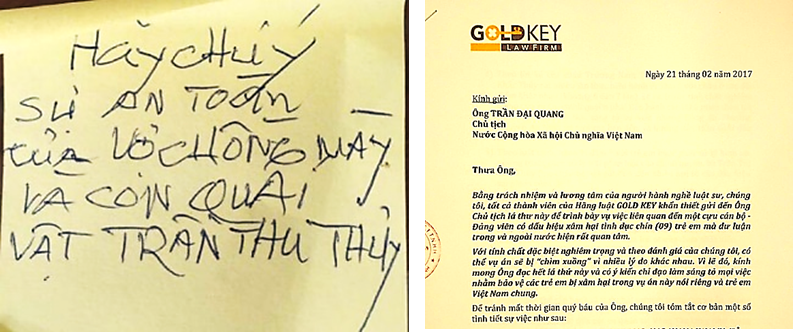 HÃY CHÚ Ý
SỰ AN TOÀN
CỦA VỢ CHỒNG MÀY
VÀ CON QUÁI
VẬT TRẦN THU THỦY
GOLDKEY
LAW FIRM
Ngày 21 tháng 02 năm 2017
Kính gửi:
Ông TRẦN ĐẠI QUANG
Chủ tịch
Nước Cộng hòa Xã hội Chủ nghĩa Việt Nam
Thưa Ông,
Bằng trách nhiệm và lương tâm của người hành nghề luật sư, chúng
tôi, tất cả thành viên của Hãng luật GOLD KEY khẩn thiết gửi đến Ông
Chủ tịch lá thư này để trình bày vụ việc liên quan đến một cựu cán bộ -
Đảng viên có dấu hiệu xâm hại tình dục chín (09) trẻ em mà dư luận
trong và ngoài nước hiện rất quan tâm.
Với tính chất đặc biệt nghiêm trọng và theo đánh giá của chúng tôi, có
thể vụ án sẽ bị "chìm xuồng" vì nhiều lý do khác nhau. Vì lẽ đó, kính
mong Ông đọc hết lá thư này và có ý kiến chỉ đạo làm sáng tỏ mọi việc
nhằm bảo vệ các trẻ em bị xâm hại trong vụ án này nói riêng và trẻ em
Việt Nam chung.
Để tránh mất thời gian quý báu của Ông, chúng tôi tóm tắt cơ bản một số
tình tiết sự việc như sau: